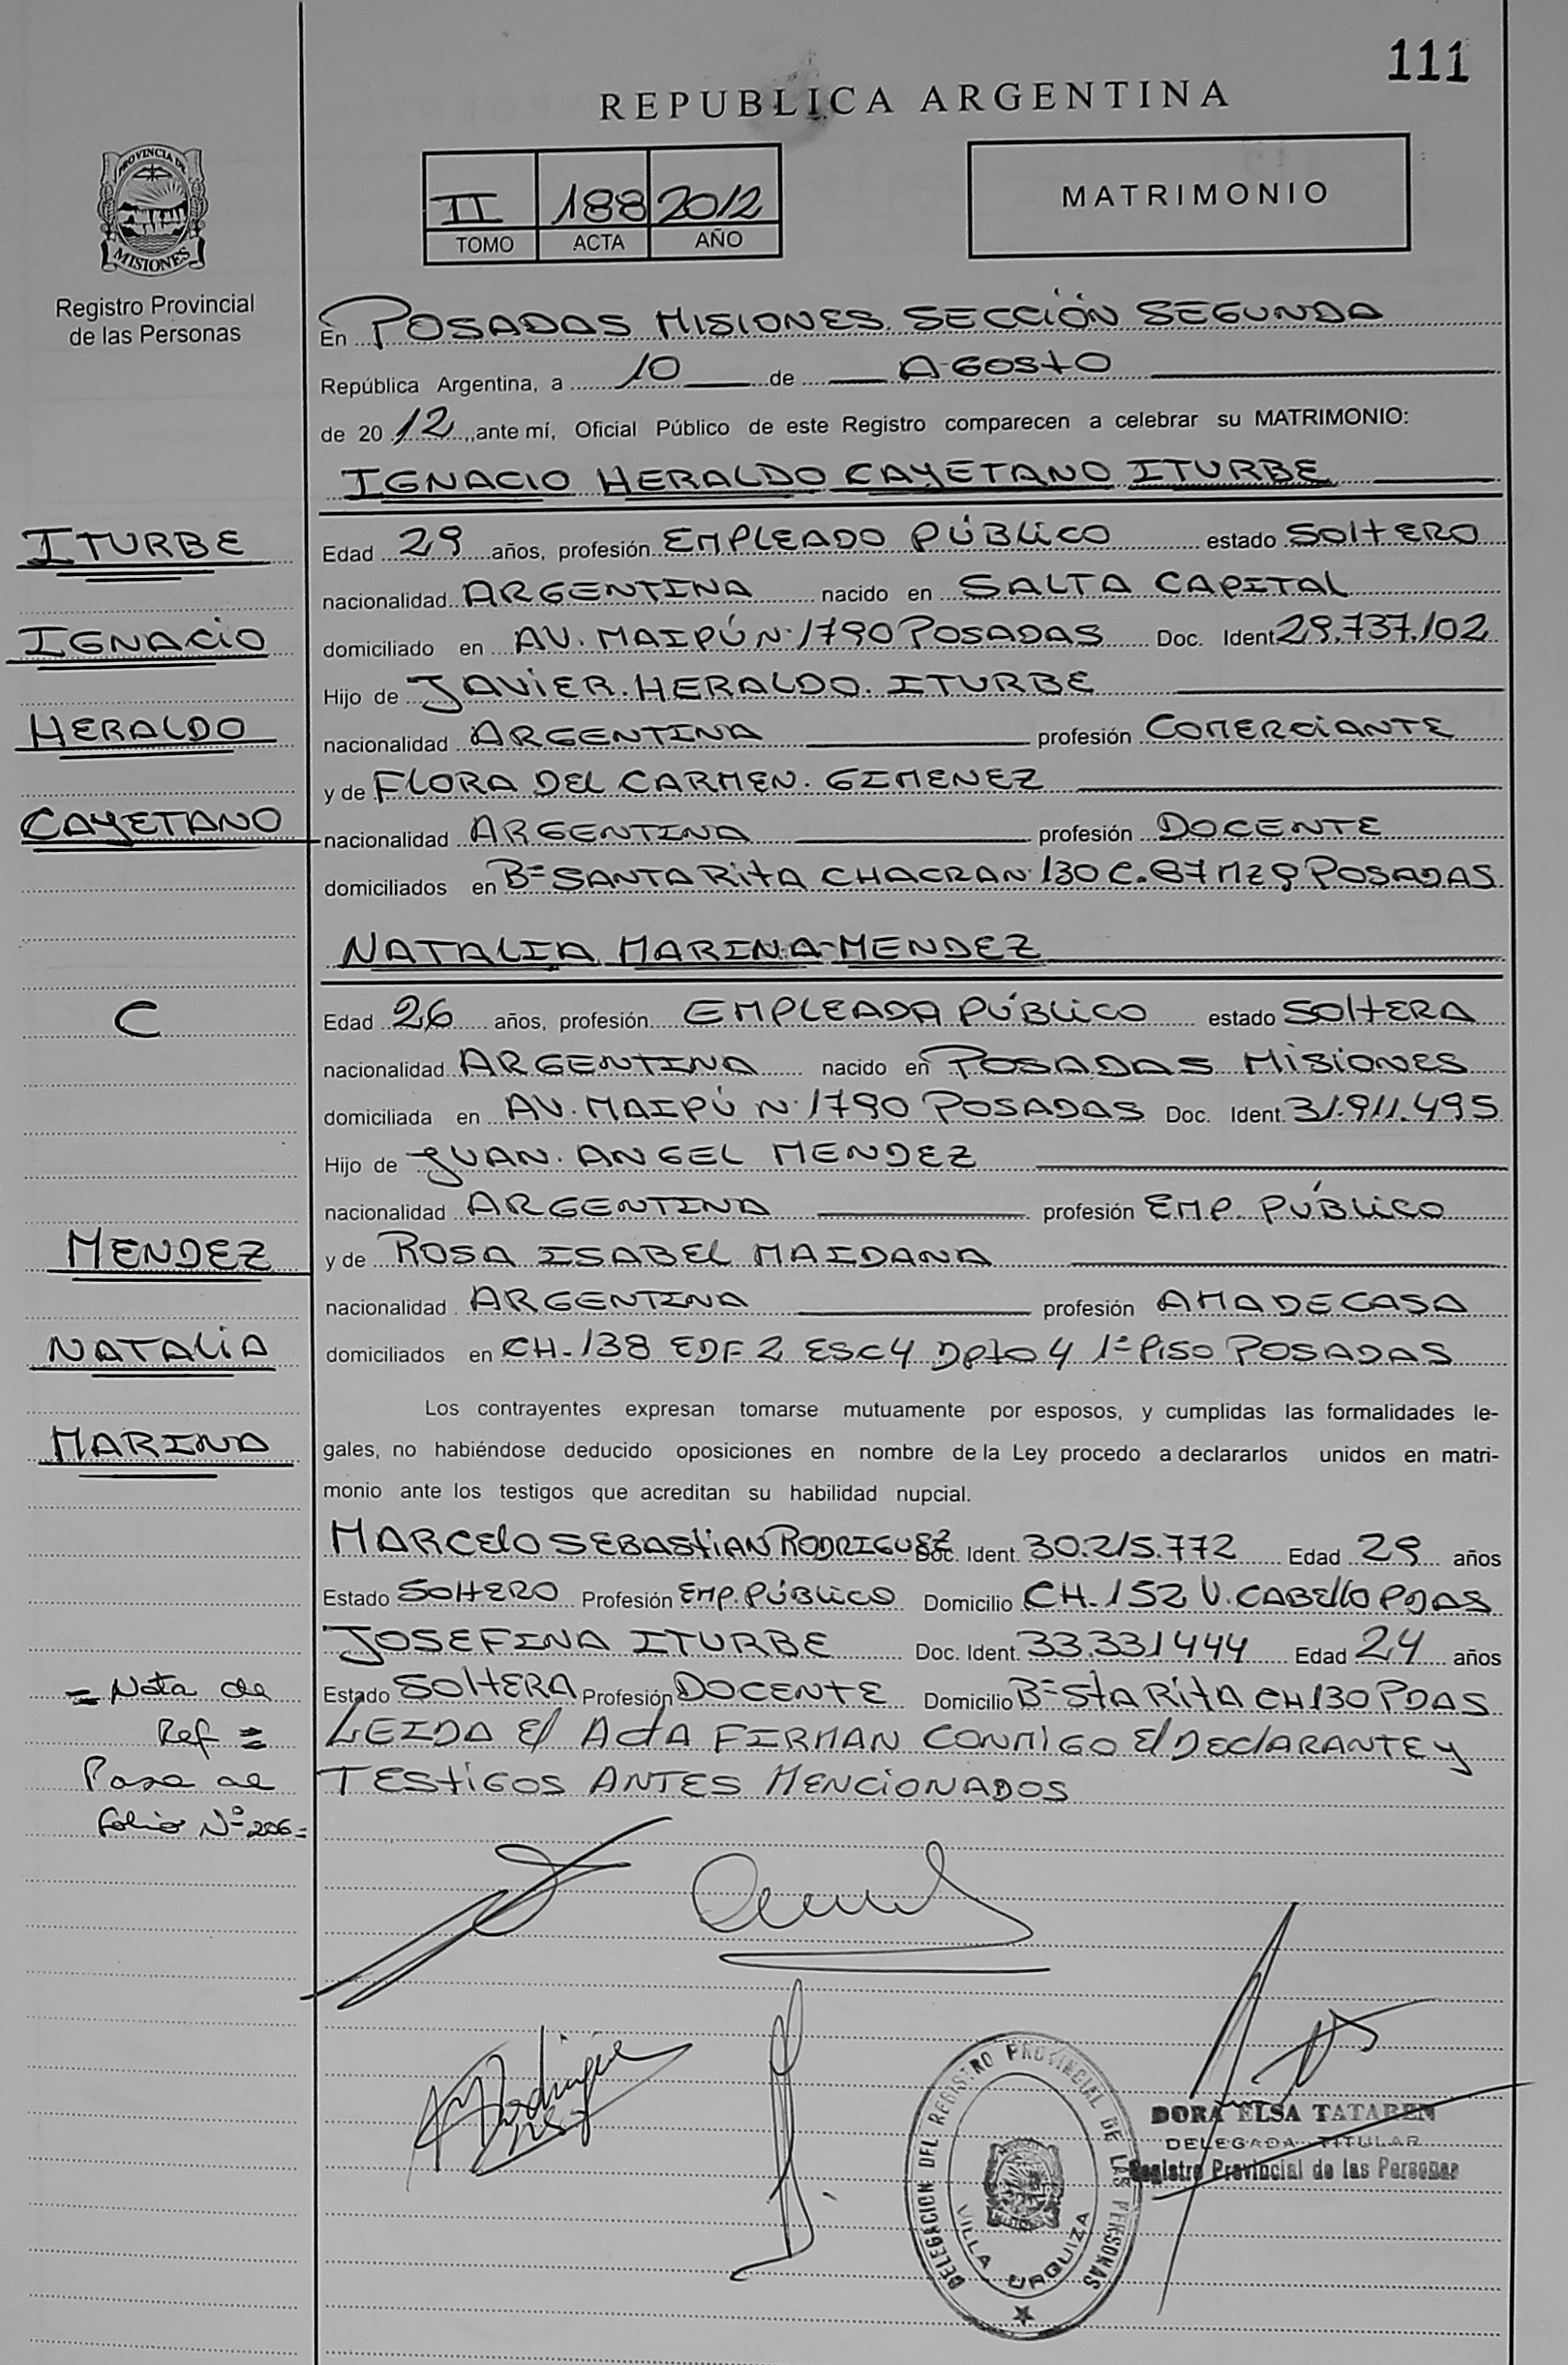 111
REPUBLICA ARGENTINA
PROVINCIA DE
MISIONES
Registro Provincial
de las Personas
II 188 2012
TOMO ACTA AÑO
MATRIMONIO
En POSADAS MISIONES. SECCIÓN SEGUNDA
República Argentina, a 10 de AGOSTO
de 20 12, ante mí, Oficial Público de este Registro comparecen a celebrar su MATRIMONIO:
IGNACIO HERALDO CAYETANO ITURBE
ITURBE
Edad 29 años, profesión EMPLEADO PÚBLICO estado SOLTERO
nacionalidad ARGENTINA nacido en SALTA CAPITAL
IGNACIO
domiciliado en AV. MAIPÚ Nº 1790 POSADAS Doc. Ident. 29.737.102
Hijo de JAVIER HERALDO ITURBE
HERALDO
nacionalidad ARGENTINA profesión COMERCIANTE
y de FLORA DEL CARMEN GIMENEZ
CAYETANO
nacionalidad ARGENTINA profesión DOCENTE
domiciliados en Bº SANTA RITA CHACRA Nº 130 C. 87 MZ 9 POSADAS
NATALIA MARINA MENDEZ
C
Edad 26 años, profesión EMPLEADA PÚBLICO estado SOLTERA
nacionalidad ARGENTINA nacido en POSADAS MISIONES
domiciliada en AV. MAIPÚ Nº 1790 POSADAS Doc. Ident. 31.911.495
Hijo de JUAN ANGEL MENDEZ
nacionalidad ARGENTINA profesión EMP. PÚBLICO
MENDEZ
y de ROSA ISABEL MAIDANA
nacionalidad ARGENTINA profesión AMA DE CASA
NATALIA
domiciliados en CH. 138 EDF 2 ESC 4 Dpto 4 1º PISO POSADAS
Los contrayentes expresan tomarse mutuamente por esposos, y cumplidas las formalidades le-
MARINA
gales, no habiéndose deducido oposiciones en nombre de la Ley procedo a declararlos unidos en matri-
monio ante los testigos que acreditan su habilidad nupcial.
MARCELO SEBASTIAN RODRIGUEZ Doc. Ident. 30.215.772 Edad 29 años
Estado SOLTERO Profesión EMP. PÚBLICO Domicilio CH. 152 V. CABELLO PDAS
JOSEFINA ITURBE Doc. Ident. 33.331444 Edad 24 años
= Nota de
Estado SOLTERA Profesión DOCENTE Domicilio Bº STA RITA CH 130 PDAS
Ref =
LEIDA El ACTA FIRMAN CONMIGO El DECLARANTE y
Pasa al
TESTIGOS ANTES MENCIONADOS
folio Nº 206=
DELEGACION DEL REGISTRO PROVINCIAL DE LAS PERSONAS
VILLA URQUIZA
DORA ELSA TATAREN
DELEGADA TITULAR
Registro Provincial de las Personas